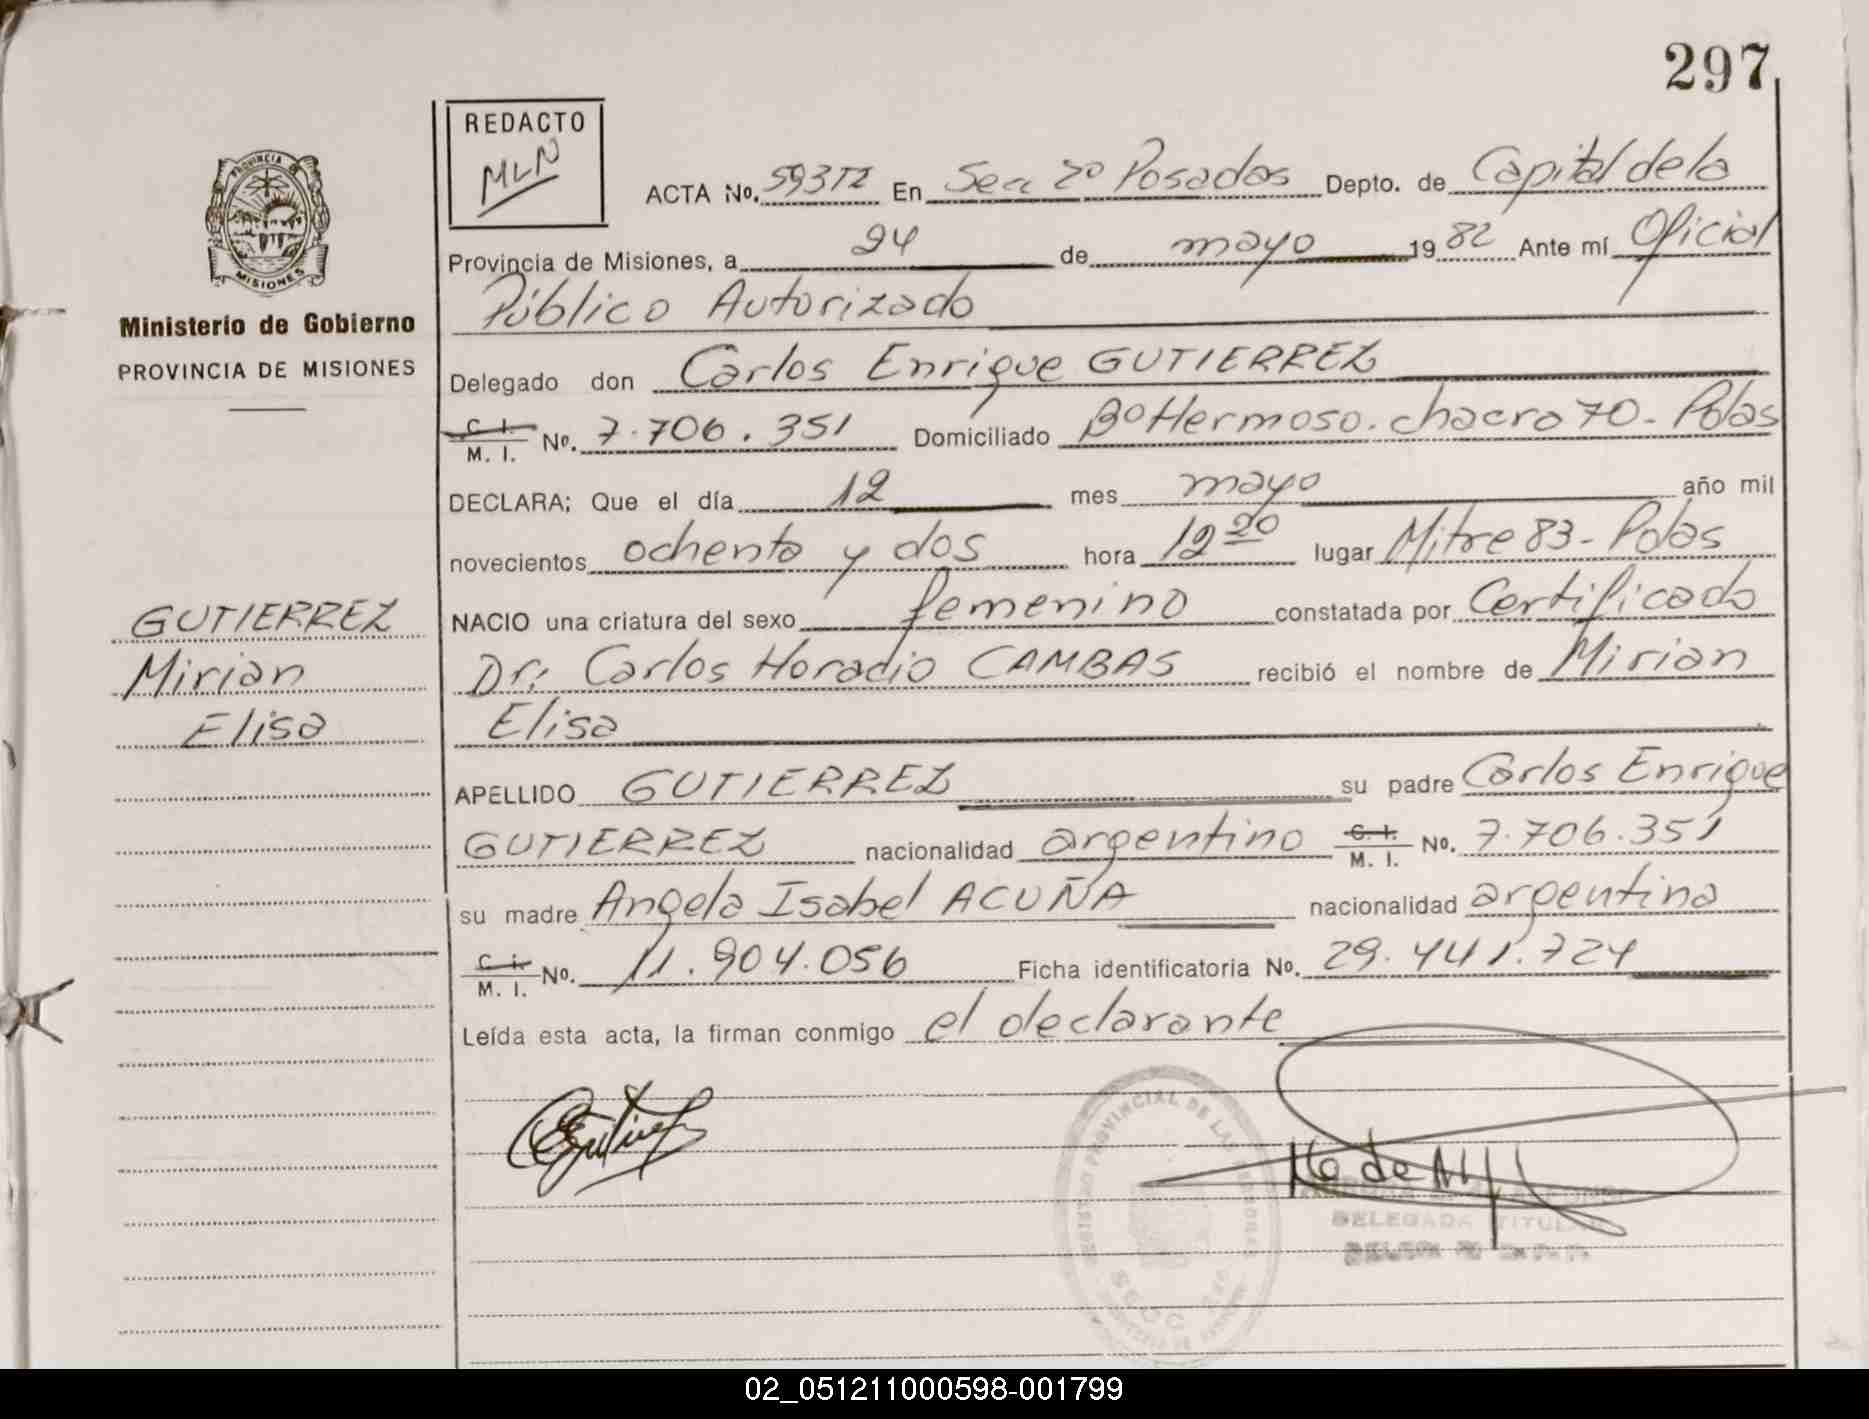 297
REDACTO
MLN
PROVINCIA
MISIONES
Ministerio de Gobierno
PROVINCIA DE MISIONES
ACTA No. 593T2 En Secc 2º Posadas Depto. de Capital de la
Provincia de Misiones, a 24 de mayo 1982 Ante mí Oficial
Público Autorizado
Delegado don Carlos Enrique GUTIERREZ
C. I.
M. I. No. 7.706.351 Domiciliado Bº Hermoso. chacra 70 - Pdas
DECLARA; Que el día 12 mes mayo año mil
novecientos ochenta y dos hora 12 20 lugar Mitre 83 - Pdas
NACIO una criatura del sexo femenino constatada por Certificado
Dr. Carlos Horacio CAMBAS recibió el nombre de Mirian
Elisa
GUTIERREZ
Mirian
Elisa
APELLIDO GUTIERREZ su padre Carlos Enrique
GUTIERREZ nacionalidad argentino C. I. M. I. No. 7.706.351
su madre Angela Isabel ACUÑA nacionalidad argentina
C. I.
M. I. No. 11.904.056 Ficha identificatoria No. 29.441.724
Leída esta acta, la firman conmigo el declarante
REGISTRO PROVINCIAL DE LAS PERSONAS
DELEGADA TITULAR
02_051211000598-001799